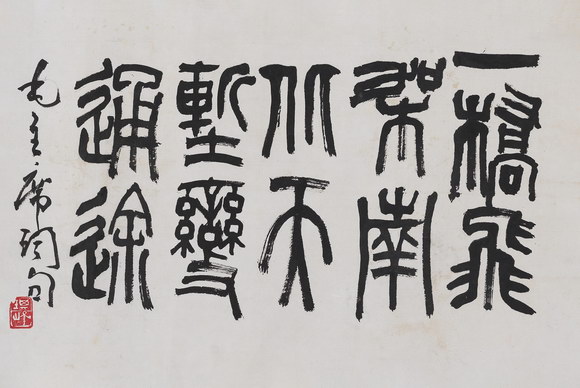 一橋飛
架南
北天
塹變
通途
毛主席詞句